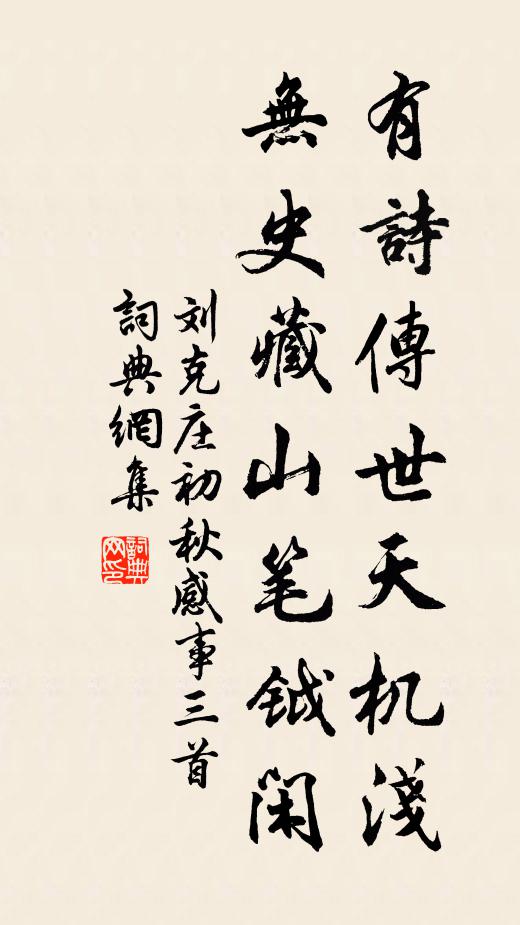 有詩傳世天机淺
無史藏山笔鉞閑
刘克庄初秋感事三首
詞典網集
詞典网印